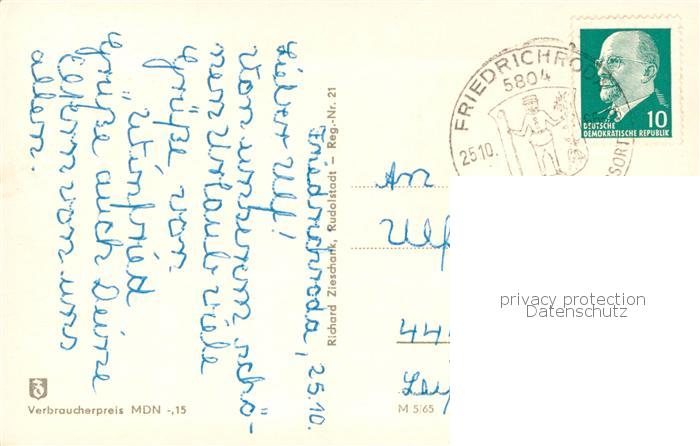 Friedrichroda, 25.10.
Lieber Ulf!
Von unserem schö-
nen Urlaub viele
Grüße von
Winfried
Grüße auch Deine
Eltern von uns
allen.
An
Ulf
Richard Zieschank, Rudolstadt – Reg.-Nr. 21
FRIEDRICHRODA
5804
25.10.
10
DEUTSCHE
DEMOKRATISCHE REPUBLIK
privacy protection
Datenschutz
Verbraucherpreis MDN -,15
M 5/65